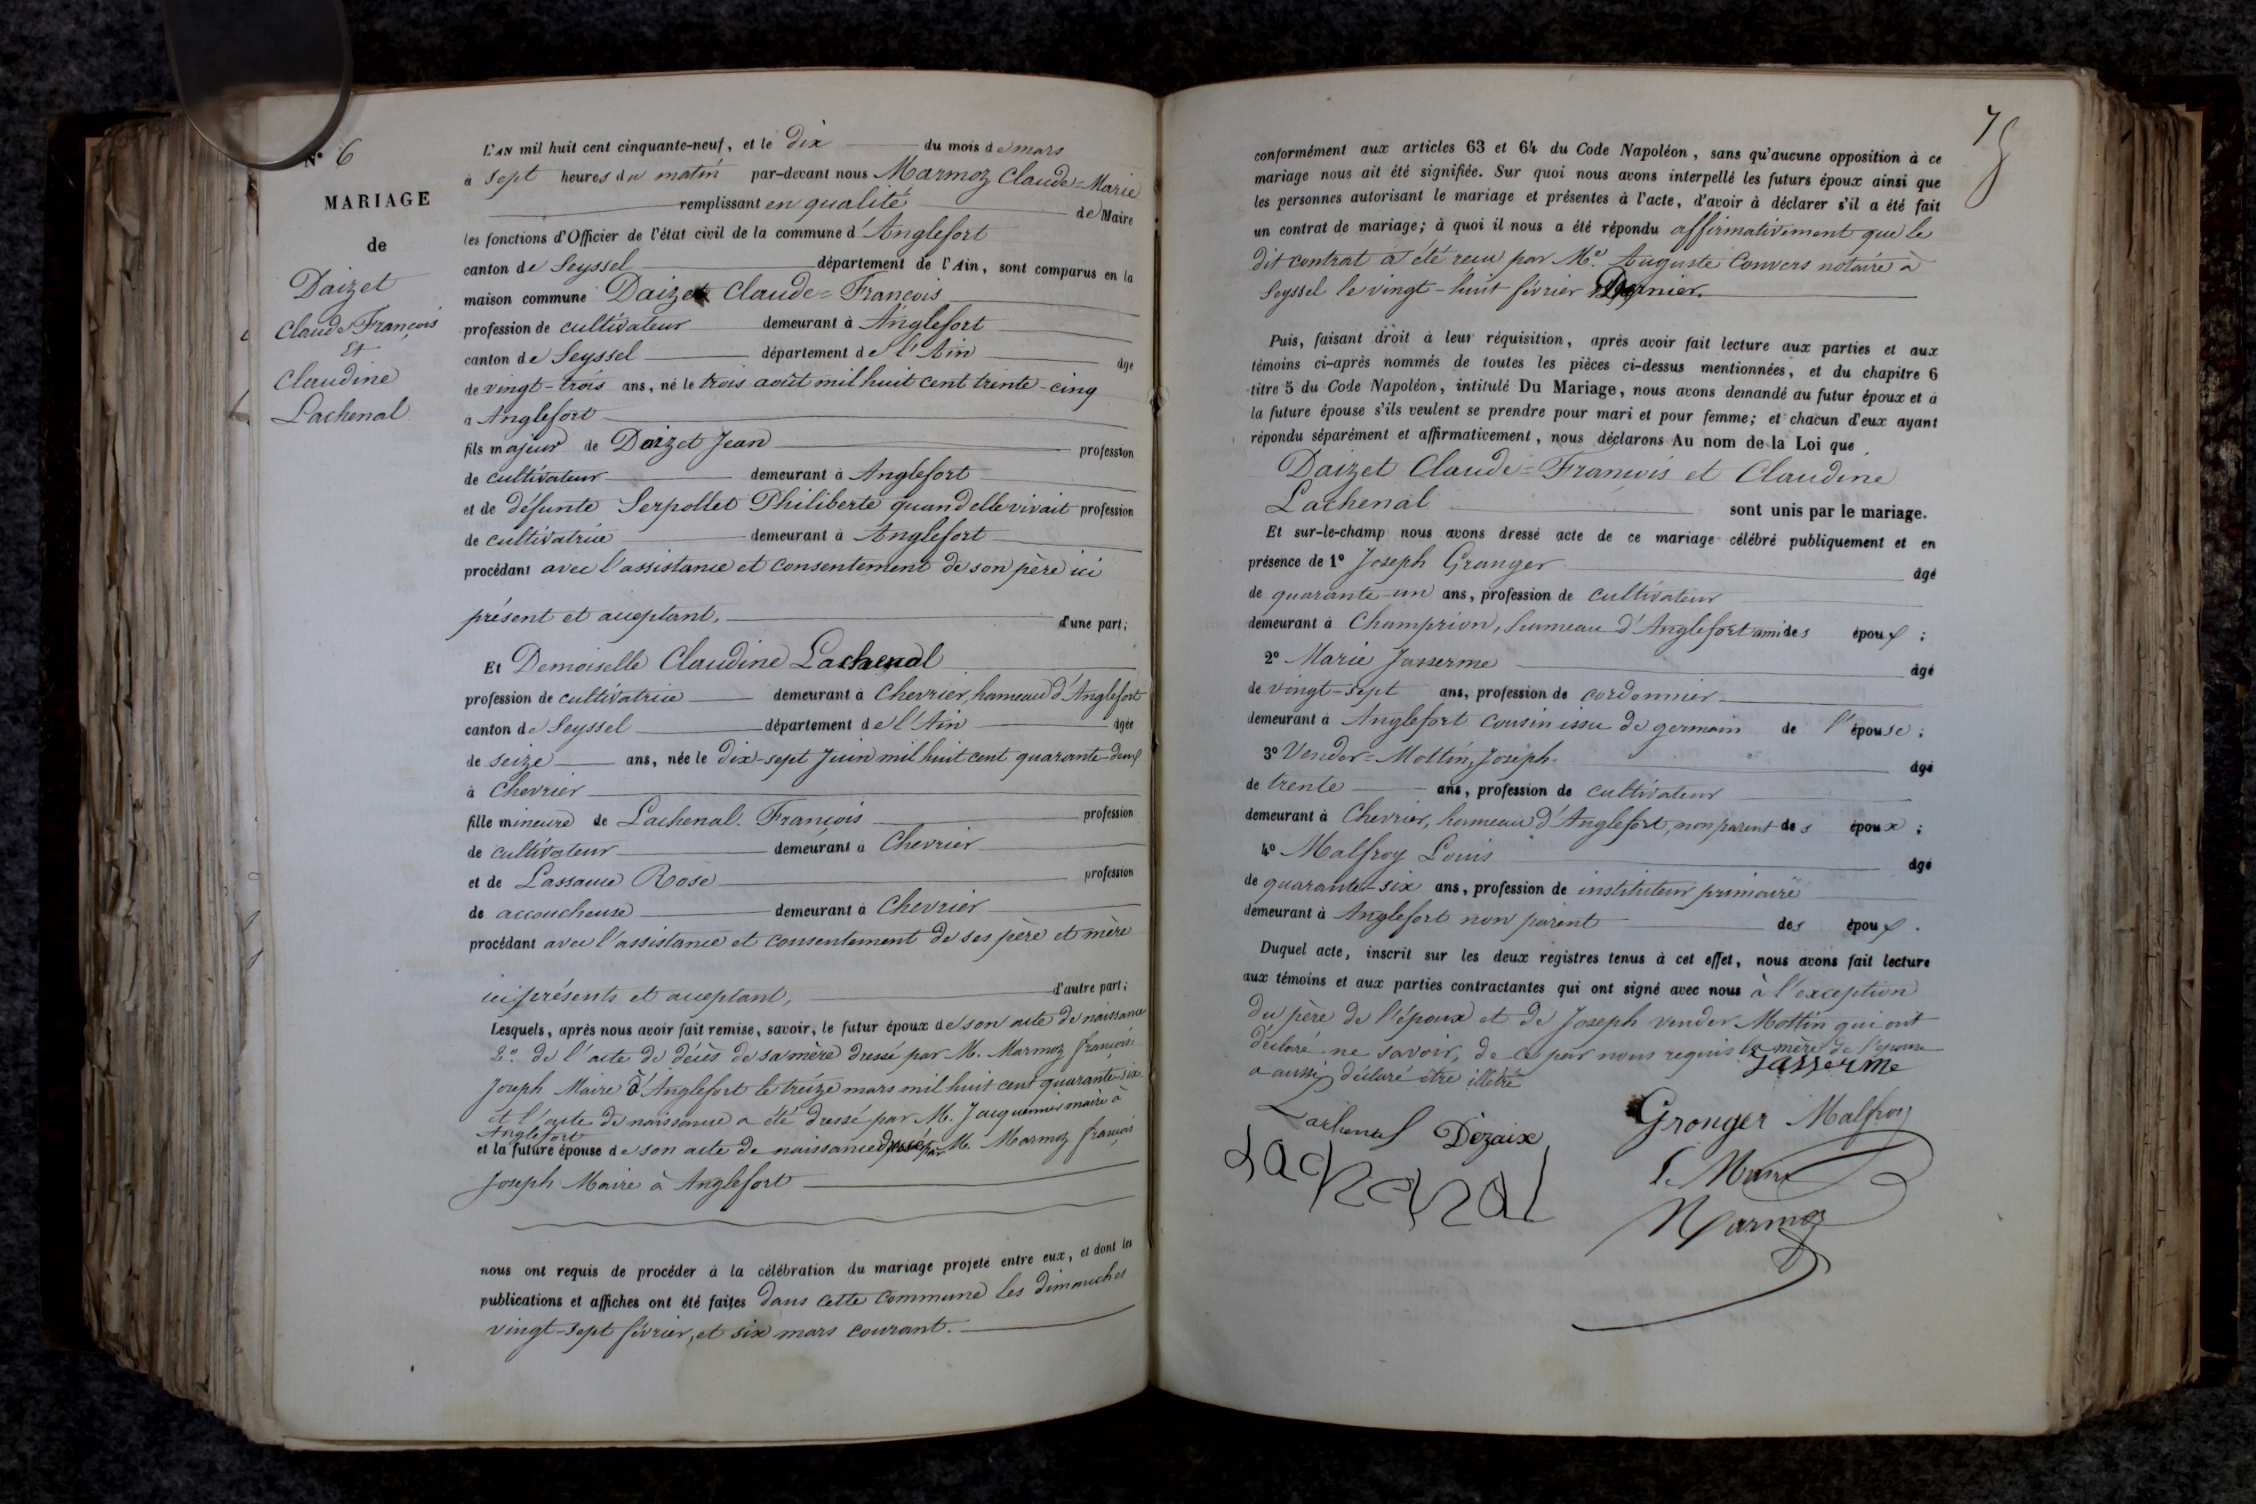 N° 6
MARIAGE
de
Daizet
Claude François
Et
Claudine
Lachenal
L'AN mil huit cent cinquante-neuf, et le dix du mois de mars
à sept heures du matin par-devant nous Marmoz Claude=Marie
remplissant en qualité de Maire
les fonctions d'Officier de l'état civil de la commune d'Anglefort
canton de Seyssel département de l'Ain, sont comparus en la
maison commune Daizet Claude=François
profession de cultivateur demeurant à Anglefort
canton de Seyssel département de l'Ain âgé
de vingt-trois ans, né le trois août mil huit cent trente-cinq
à Anglefort
fils majeur de Daizet Jean profession
de cultivateur demeurant à Anglefort
et de défunte Serpollet Philiberte quand elle vivait profession
de cultivatrice demeurant à Anglefort
procédant avec l'assistance et consentement de son père ici
présent et acceptant, d'une part;
Et Demoiselle Claudine Lachenal
profession de cultivatrice demeurant à Chevrier, hameau d'Anglefort
canton de Seyssel département de l'Ain âgée
de seize ans, née le dix-sept Juin mil huit cent quarante-deux
à Chevrier
fille mineure de Lachenal François profession
de cultivateur demeurant à Chevrier
et de Lassaue Rose profession
de accoucheuse demeurant à Chevrier
procédant avec l'assistance et consentement de ses père et mère
ici présents et acceptant, d'autre part;
Lesquels, après nous avoir fait remise, savoir, le futur époux de son acte de naissance
2° de l'acte de décès de sa mère dressé par M. Marmoz françois
Joseph Maire à Anglefort le treize mars mil huit cent quarante-six
et l'acte de naissance a été dressé par M. Jacquemier maire à
Anglefort
et la future épouse de son acte de naissance dressé par M. Marmoz françois
Joseph Maire à Anglefort
nous ont requis de procéder à la célébration du mariage projeté entre eux, et dont les
publications et affiches ont été faites dans cette commune les dimanches
vingt-sept février, et six mars courant.
conformément aux articles 63 et 64 du Code Napoléon, sans qu'aucune opposition à ce
mariage nous ait été signifiée. Sur quoi nous avons interpellé les futurs époux ainsi que
les personnes autorisant le mariage et présentes à l'acte, d'avoir à déclarer s'il a été fait
un contrat de mariage; à quoi il nous a été répondu affirmativement que le
dit contrat a été reçu par Me. Auguste Convers notaire à
Seyssel le vingt-huit février dernier.
Puis, faisant droit à leur réquisition, après avoir fait lecture aux parties et aux
témoins ci-après nommés de toutes les pièces ci-dessus mentionnées, et du chapitre 6
titre 5 du Code Napoléon, intitulé Du Mariage, nous avons demandé au futur époux et à
la future épouse s'ils veulent se prendre pour mari et pour femme; et chacun d'eux ayant
répondu séparément et affirmativement, nous déclarons Au nom de la Loi que
Daizet Claude=François et Claudine
Lachenal sont unis par le mariage.
Et sur-le-champ nous avons dressé acte de ce mariage célébré publiquement et en
présence de 1° Joseph Granger âgé
de quarante-un ans, profession de cultivateur
demeurant à Champrion, hameau d'Anglefort ami des époux;
2° Marie Jasserme âgé
de vingt-sept ans, profession de cordonnier
demeurant à Anglefort cousin issu de germain de l'épouse;
3° Vender=Mottin, Joseph âgé
de trente ans, profession de cultivateur
demeurant à Chevrier, hameau d'Anglefort, non parent des époux;
4° Malfroy Louis âgé
de quarante-six ans, profession de instituteur primaire
demeurant à Anglefort non parent des époux.
Duquel acte, inscrit sur les deux registres tenus à cet effet, nous avons fait lecture
aux témoins et aux parties contractantes qui ont signé avec nous à l'exception
du père de l'époux et de Joseph vender Mottin qui ont
déclaré ne savoir, de ce par nous requis la mère de l'épouse
a aussi déclaré être illétré
Jasserme
Granger Malfroy
Lachenal Dézaix
Lachenal
Le Maire
Marmoz